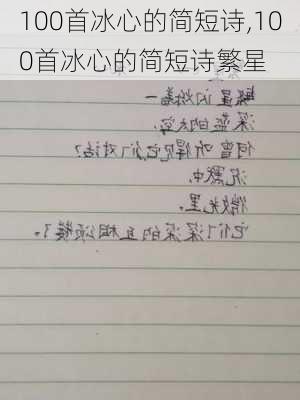 100首冰心的简短诗,10
0首冰心的简短诗繁星
繁星闪烁着一
深蓝的太空,
何曾听得见它们对话?
沉默中,
微光里,
它们深深的互相颂赞了。